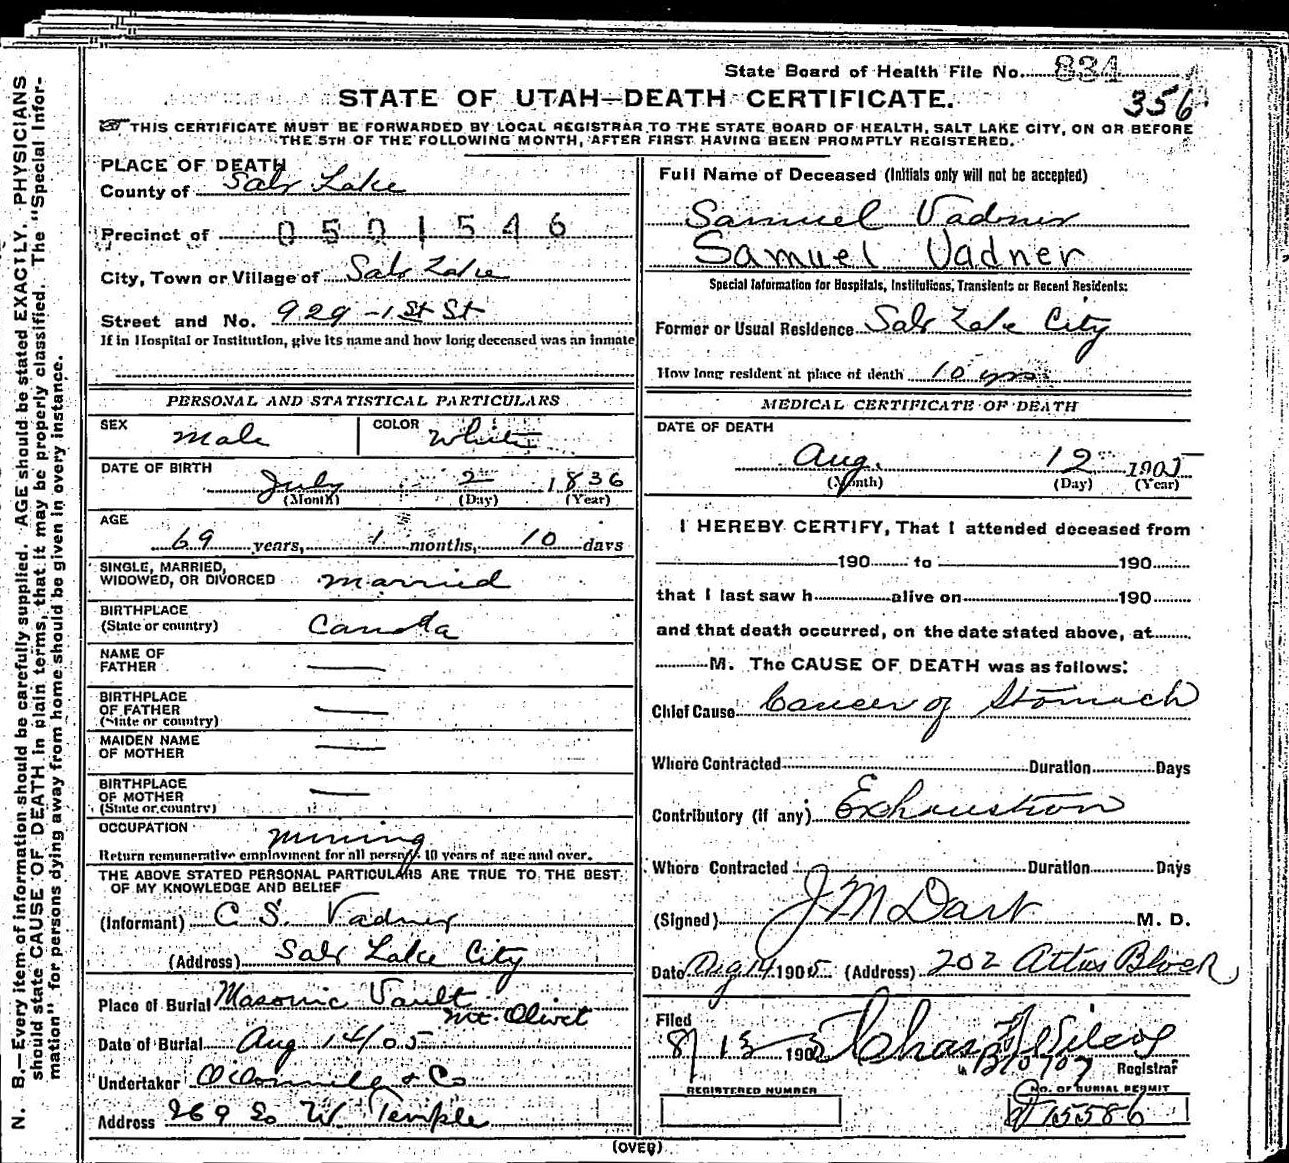 State Board of Health File No. 834
356
STATE OF UTAH—DEATH CERTIFICATE.
THIS CERTIFICATE MUST BE FORWARDED BY LOCAL REGISTRAR TO THE STATE BOARD OF HEALTH, SALT LAKE CITY, ON OR BEFORE
THE 5TH OF THE FOLLOWING MONTH, AFTER FIRST HAVING BEEN PROMPTLY REGISTERED.
N. B.—Every item of information should be carefully supplied. AGE should be stated EXACTLY. PHYSICIANS
should state CAUSE OF DEATH in plain terms, that it may be properly classified. The "Special Infor-
mation" for persons dying away from home should be given in every instance.
PLACE OF DEATH
County of Salt Lake
Precinct of 0501546
City, Town or Village of Salt Lake
Street and No. 929 - 1st St
If in Hospital or Institution, give its name and how long deceased was an inmate
PERSONAL AND STATISTICAL PARTICULARS
SEX Male COLOR White
DATE OF BIRTH
July 2 1836
(Month) (Day) (Year)
AGE
69 years, 1 months, 10 days
SINGLE, MARRIED,
WIDOWED, OR DIVORCED married
BIRTHPLACE
(State or country) Canada
NAME OF
FATHER —
BIRTHPLACE
OF FATHER —
(State or country)
MAIDEN NAME
OF MOTHER —
BIRTHPLACE
OF MOTHER —
(State or country)
OCCUPATION Mining
Return remunerative employment for all persons 10 years of age and over.
THE ABOVE STATED PERSONAL PARTICULARS ARE TRUE TO THE BEST
OF MY KNOWLEDGE AND BELIEF
(Informant) C. S. Vadner
(Address) Salt Lake City
Place of Burial Masonic Vault
Mt. Olivet
Date of Burial Aug 14/05
Undertaker O'Donnell & Co
Address 269 So W. Temple
Full Name of Deceased (Initials only will not be accepted)
Samuel Vadner
Samuel Vadner
Special Information for Hospitals, Institutions, Transients or Recent Residents:
Former or Usual Residence Salt Lake City
How long resident at place of death 10 yrs
MEDICAL CERTIFICATE OF DEATH
DATE OF DEATH
Aug. 12 1905
(Month) (Day) (Year)
I HEREBY CERTIFY, That I attended deceased from
190 to 190
that I last saw h alive on 190
and that death occurred, on the date stated above, at
M. The CAUSE OF DEATH was as follows:
Chief Cause Cancer of Stomach
Where Contracted Duration Days
Contributory (if any) Exhaustion
Where Contracted Duration Days
(Signed) J M Dart M. D.
Date Aug 14 1905 (Address) 202 Atlas Block
Filed
8/ 13 1905 Chas Wilcox
Registrar
REGISTERED NUMBER
No. OF BURIAL PERMIT
15586
(OVER)